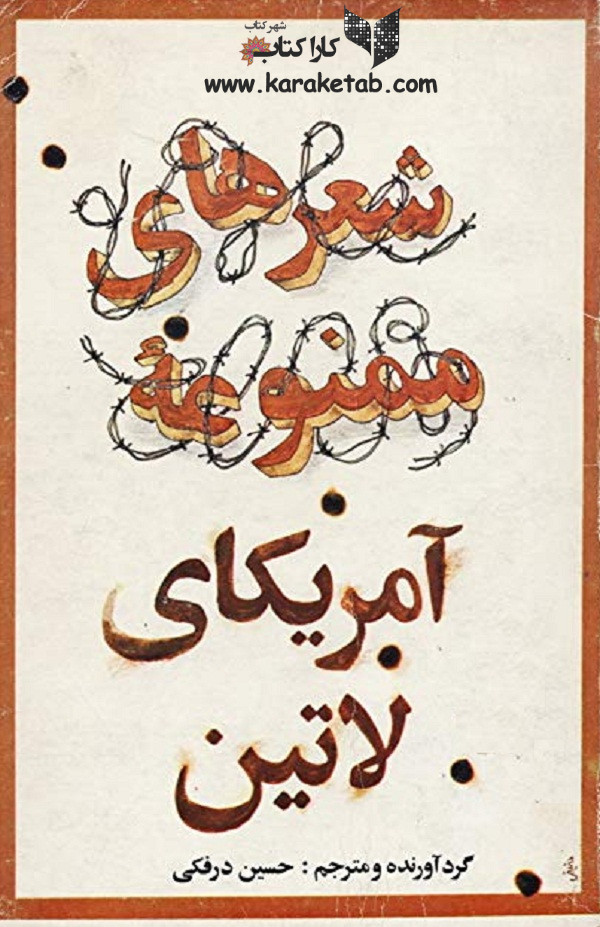 شهر کتاب
کارا کتاب
www.karaketab.com
شعرهای
ممنوعهٔ
آمریکای
لاتین
گردآورنده و مترجم : حسین درفکی